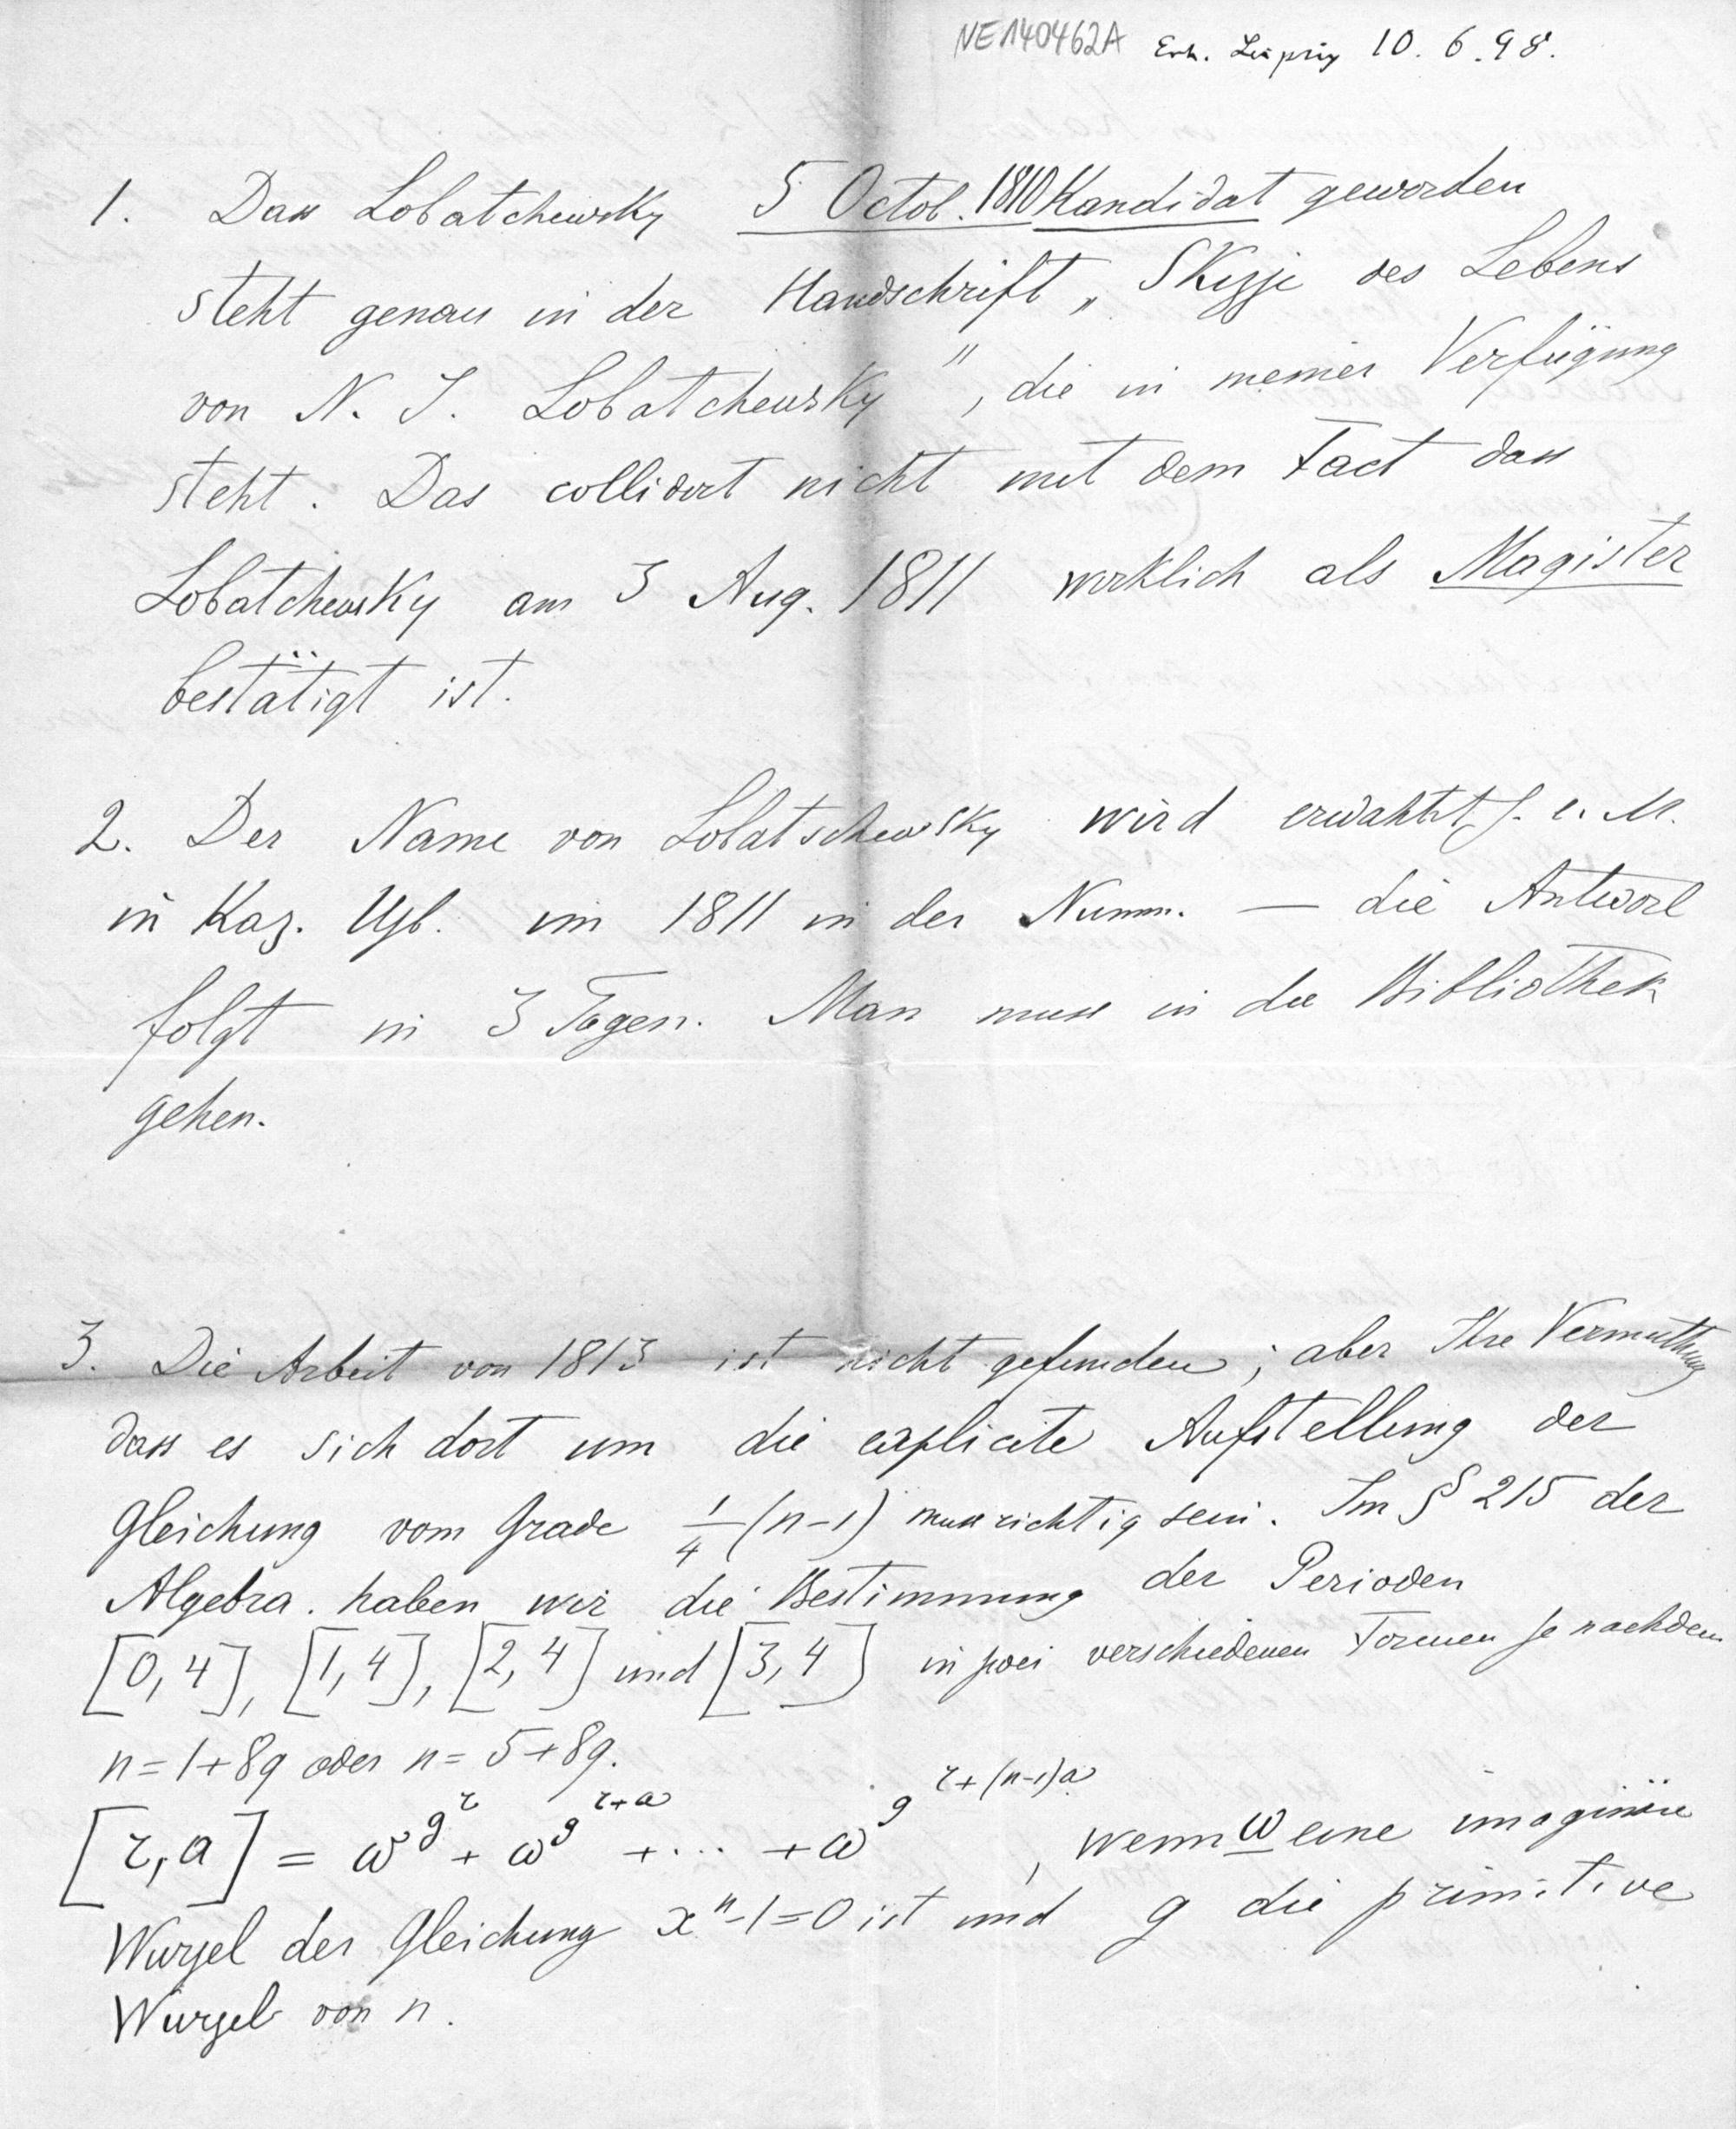 NE140462A Erh. Leipzig 10. 6. 98.
1. Dass Lobatchewsky 5 Octob. 1810 Kandidat geworden
steht genau in der Handschrift „Skizze des Lebens
von N. I. Lobatchewsky", die in meiner Verfügung
steht. Das collidirt nicht mit dem Fact dass
Lobatchewsky am 3 Aug. 1811 wirklich als Magister
bestätigt ist.
2. Der Name von Lobatschewsky wird erwähnt z. e. M.
in Kaz. Uzb. im 1811 in der Numm. — die Antwort
folgt in 3 Tagen. Man muss in die Bibliothek
gehen.
3. Die Arbeit von 1813 ist nicht gefunden; aber Ihre Vermuthung
dass es sich dort um die explicite Aufstellung der
Gleichung vom Grade 1/4 (n-1) muss richtig sein. Im § 215 der
Algebra. haben wir die Bestimmung der Perioden
[0,4], [1,4], [2,4] und [3,4] in zwei verschiedenen Formen je nachdem
n=1+8q oder n=5+8q.
[r,a] = ω^{g^{r}} + ω^{g^{r+a}} + ... + ω^{g^{r+(n-1)a}}, wenn ω eine imaginäre
Wurzel der Gleichung x^n-1=0 ist und g die primitive
Wurzel von n.